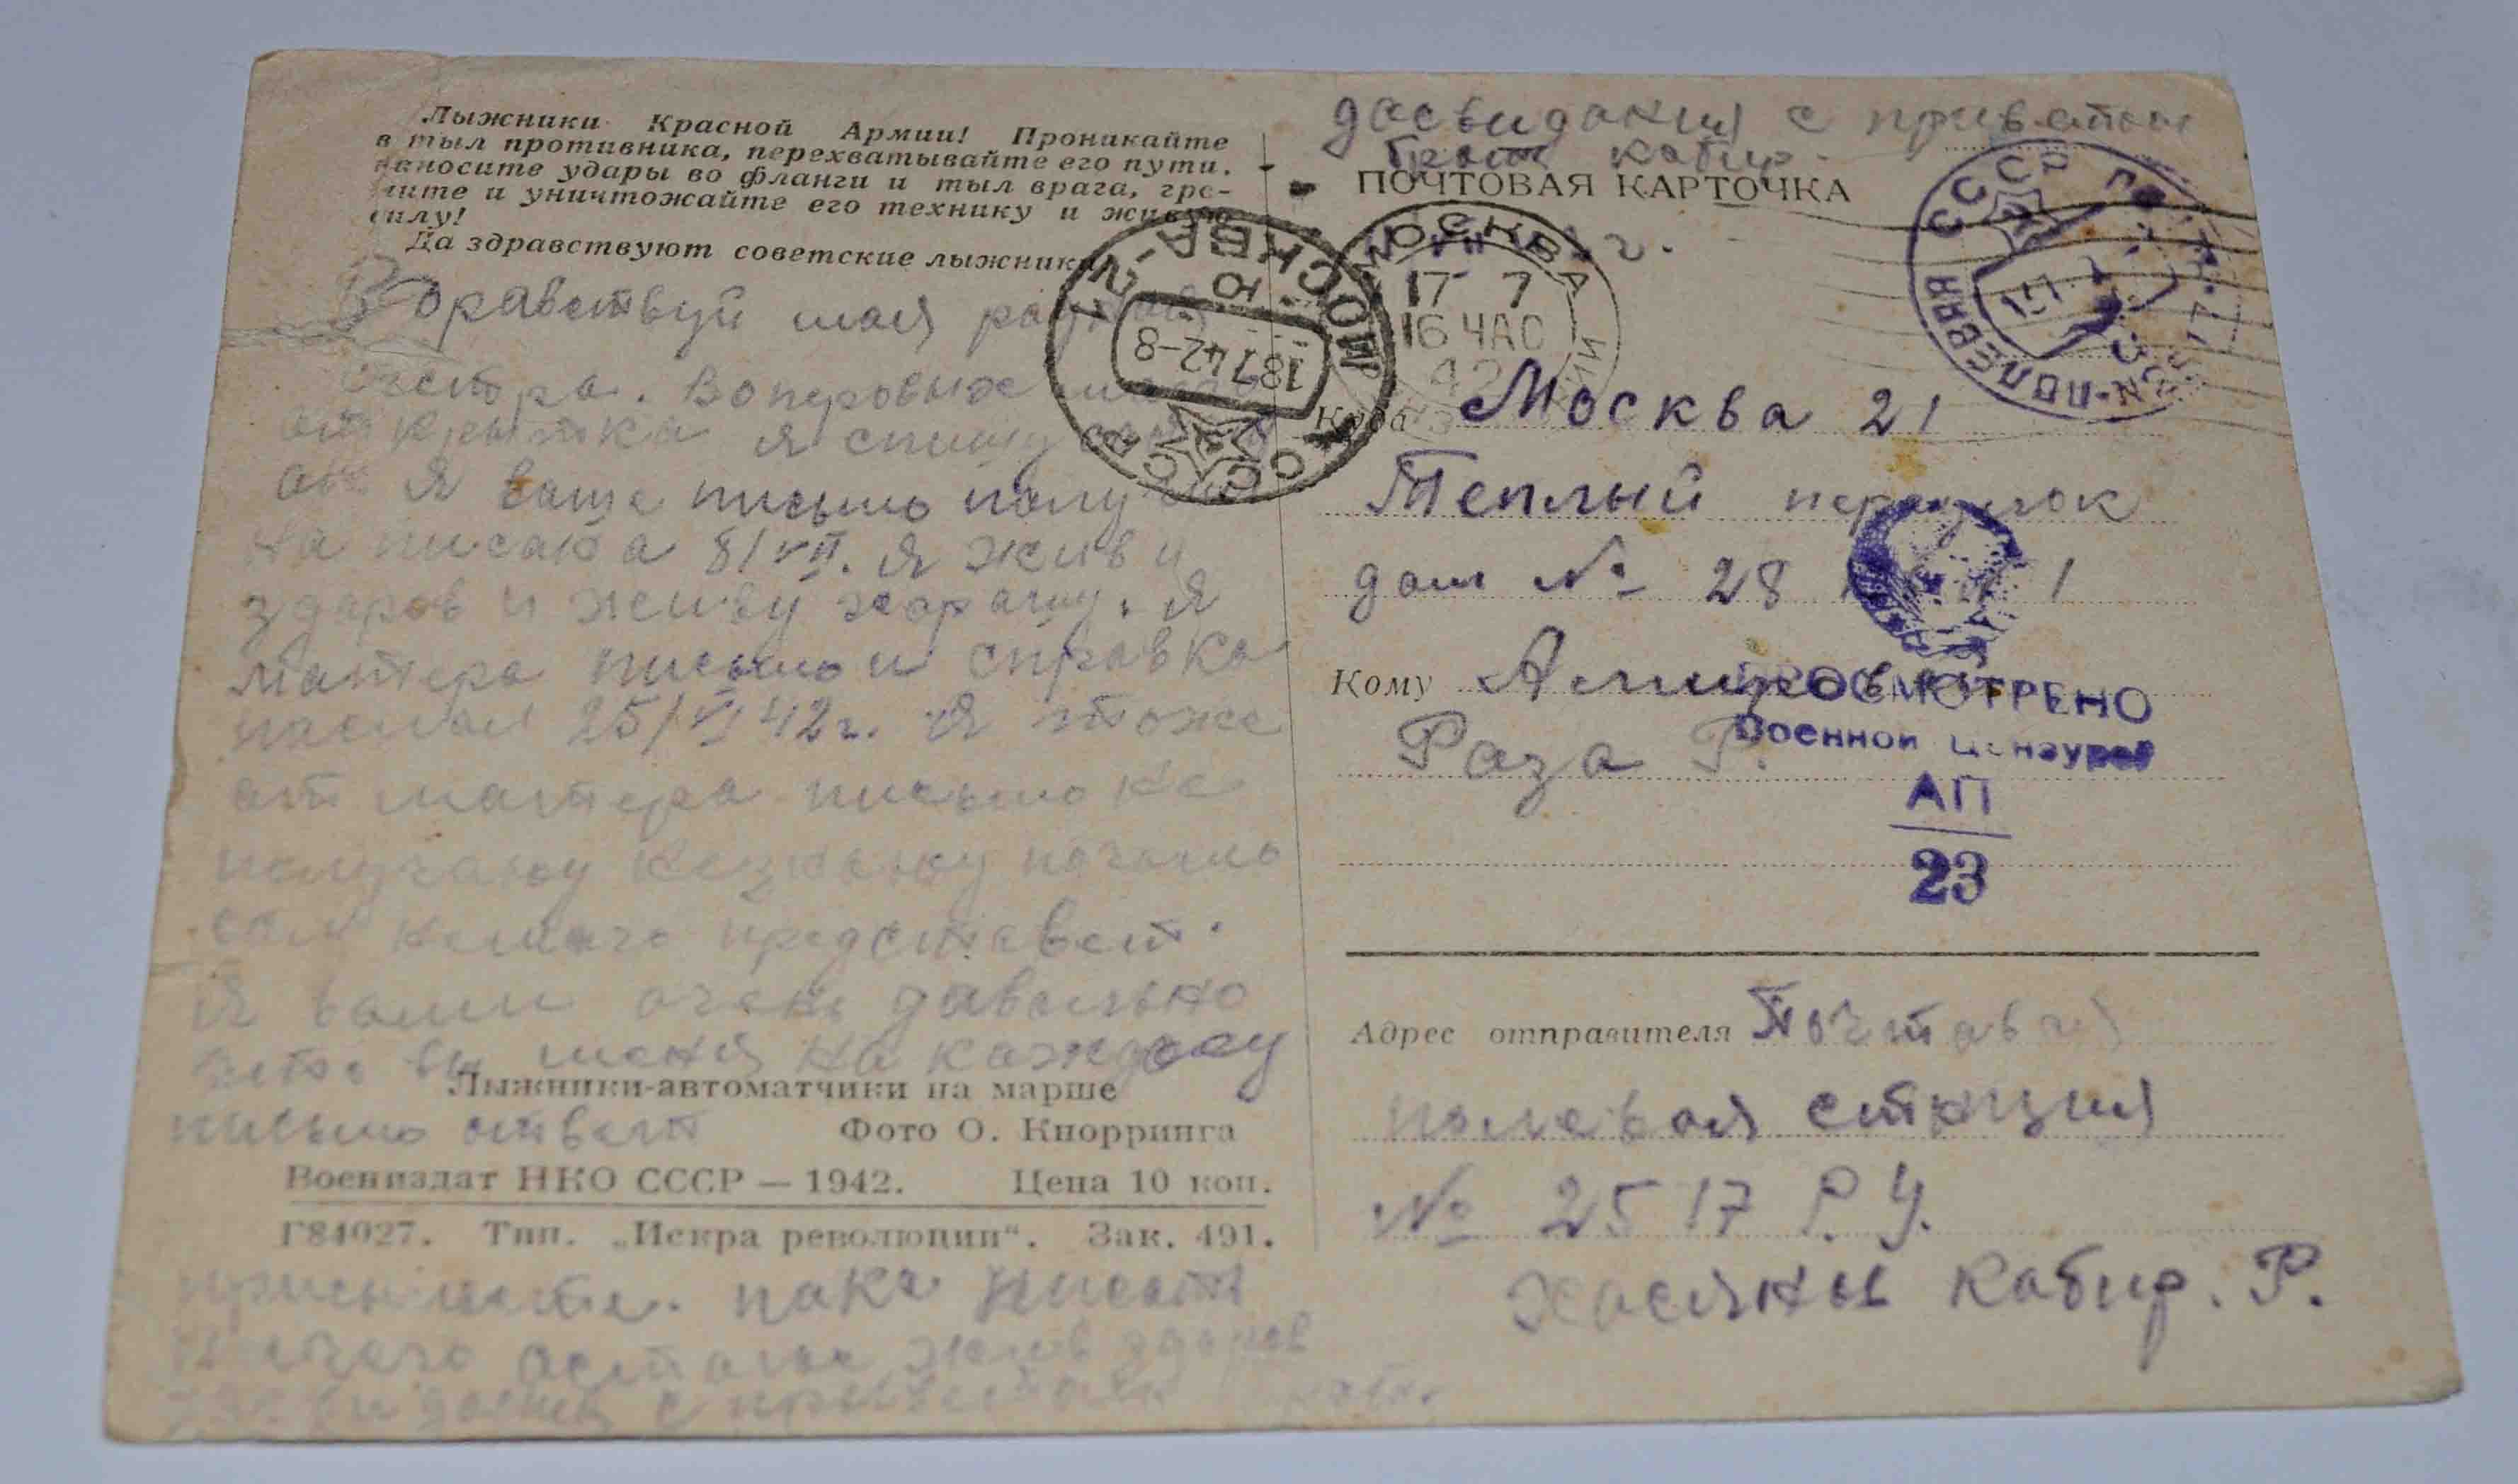 Лыжники Красной Армии! Проникайте
в тыл противника, перехватывайте его пути,
наносите удары во фланги и тыл врага, гро-
мите и уничтожайте его технику и живую
силу!
Да здравствуют советские лыжники
Здравствуй моя
сестра. Воперовых
открытка я спишу
я ваше письмо
на писано 8/VII. я жив и
здаров и живу харашу. я
матера письмо и справка
послал 25/VI 42г. я тоже
от матера письмо не
получаю
сам ничего представет.
Я вами очень давольно
что вы меня на каждоеу
письмо ответ
Лыжники-автоматчики на марше
Фото О. Кнорринга
Воениздат НКО СССР — 1942. Цена 10 коп.
Г84027. Тип. „Искра революции“. Зак. 491.
пака писать
ничего астаюсь жив здаров
с приветам
досвидания с приветом
брат кабир.
ПОЧТОВАЯ КАРТОЧКА
МОСКВА
17 7
16 ЧАС
42
МОСКВА-21
18742-8
СССР
СССР
ПОЛЕВАЯ
Куда Москва 21
Теплый переулок
дом № 28 1
Кому Амирова
Раза Р.
ПРОСМОТРЕНО
Военной Цензурой
АП
23
Адрес отправителя Почтавая
полевая станция
№ 2517 Р.У.
Хасянов Кабир. Р.